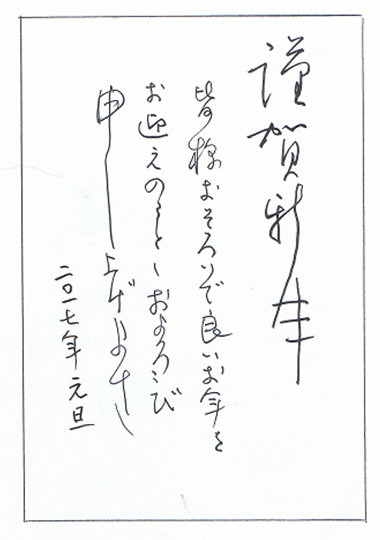 謹賀新年
皆様おそろいで良いお年を
お迎えのことゝおよろこび
申し上げます
二〇一七年 元旦